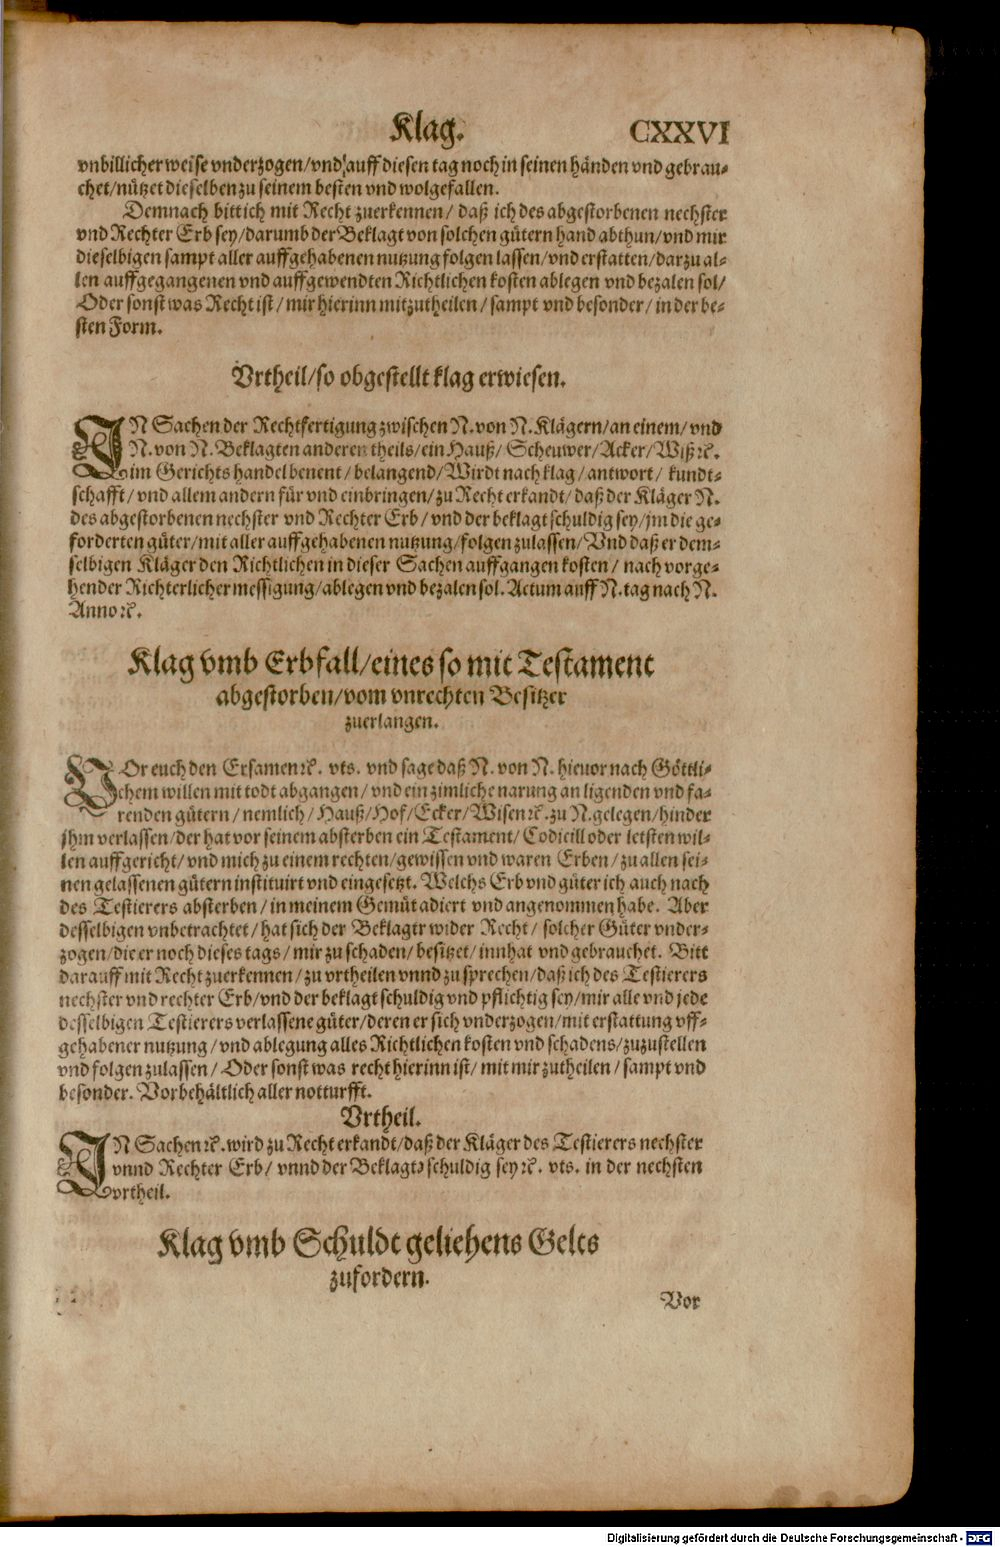 Klag. CXXVI
vnbillicher weise vnderzogen/vnd auff diesen tag noch in seinen händen vnd gebrau-
chet/nützet dieselben zu seinem besten vnd wolgefallen.
Demnach bitt ich mit Recht zuerkennen/ daß ich des abgestorbenen nechster
vnd Rechter Erb sey/darumb der Beklagt von solchen gütern hand abthun/vnd mir
dieselbigen sampt aller auffgehabenen nutzung folgen lassen/vnd erstatten/darzu al-
len auffgegangenen vnd auffgewendten Richtlichen kosten ablegen vnd bezalen sol/
Oder sonst was Recht ist/mir hierinn mitzutheilen/ sampt vnd besonder/in der be-
sten Form.
Vrtheil/so obgestellt klag erwiesen.
IN Sachen der Rechtfertigung zwischen N. von N. Klägern/an einem/vnd
N. von N. Beklagten anderen theils/ein Hauß/ Scheuwer/Acker/Wiß ꝛc.
im Gerichts handel benent/ belangend/Wirdt nach klag/antwort/ kundt-
schafft/vnd allem andern für vnd einbringen/zu Recht erkandt/daß der Kläger N.
des abgestorbenen nechster vnd Rechter Erb/vnd der beklagt schuldig sey/jm die ge-
forderten güter/mit aller auffgehabenen nutzung/folgen zulassen/Vnd daß er dem-
selbigen Kläger den Richtlichen in dieser Sachen auffgangen kosten/ nach vorge-
hender Richterlicher messigung/ablegen vnd bezalen sol. Actum auff N. tag nach N.
Anno ꝛc.
Klag vmb Erbfall/eines so mit Testament
abgestorben/vom vnrechten Besitzer
zuerlangen.
VOr euch den Ersamen ꝛc. vts. vnd sage daß N. von N. hieuor nach Göttli-
chem willen mit todt abgangen/ vnd ein zimliche narung an ligenden vnd fa-
renden gütern/nemlich/Hauß/Hof/Ecker/Wisen ꝛc. zu N. gelegen/hinder
jhm verlassen/der hat vor seinem absterben ein Testament/Codicill oder letsten wil-
len auffgericht/vnd mich zu einem rechten/gewissen vnd waren Erben/zu allen sei-
nen gelassenen gütern instituirt vnd eingesetzt. Welchs Erb vnd güter ich auch nach
des Testierers absterben/in meinem Gemüt adiert vnd angenommen habe. Aber
desselbigen vnbetrachtet/hat sich der Beklagtr wider Recht/ solcher Güter vnder-
zogen/die er noch dieses tags/mir zu schaden/besitzet/innhat vnd gebrauchet. Bitt
darauff mit Recht zuerkennen/zu vrtheilen vnnd zu sprechen/daß ich des Testierers
nechster vnd rechter Erb/vnd der beklagt schuldig vnd pflichtig sey/mir alle vnd jede
desselbigen Testierers verlassene güter/deren er sich vnderzogen/mit erstattung vff-
gehabener nutzung/vnd ablegung alles Richtlichen kosten vnd schadens/zuzustellen
vnd folgen zulassen/ Oder sonst was recht hierinn ist/mit mir zutheilen/sampt vnd
besonder. Vorbehältlich aller notturfft.
Vrtheil.
IN Sachen ꝛc. wird zu Recht erkandt/daß der Kläger des Testierers nechster
vnnd Rechter Erb/ vnnd der Beklagt schuldig sey ꝛc. vts. in der nechsten
vrtheil.
Klag vmb Schuldt geliehens Gelts
zufordern.
Vor
Digitalisierung gefördert durch die Deutsche Forschungsgemeinschaft - DFG